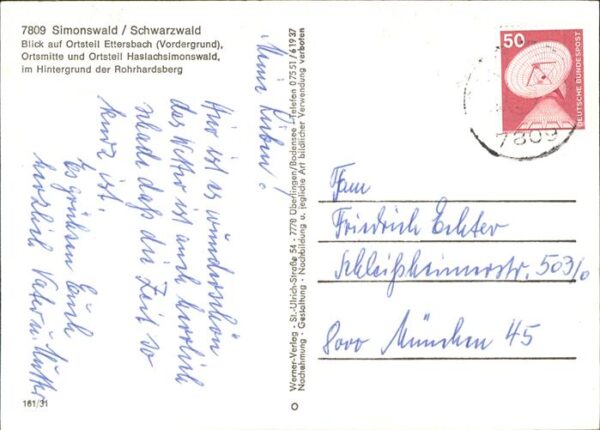 7809 Simonswald / Schwarzwald
Blick auf Ortsteil Ettersbach (Vordergrund),
Ortsmitte und Ortsteil Haslachsimonswald,
im Hintergrund der Rohrhardsberg
Meine Lieben!
Hier ist es wunderschön
das Wetter ist auch herrlich
schade daß die Zeit so
kurz ist.
Es grüßen Euch
herzlich Vater u. Mutter
161/31
Werner-Verlag - St.-Ullrich-Straße 54 - 7778 Überlingen/Bodensee - Telefon 07551/61937
Nachahmung - Gestaltung - Nachbildung u. jegliche Art bildlicher Verwendung verboten
50
DEUTSCHE BUNDESPOST
7809
Fam
Friedrich Echter
Schleißheimerstr. 503/0
8000 München 45